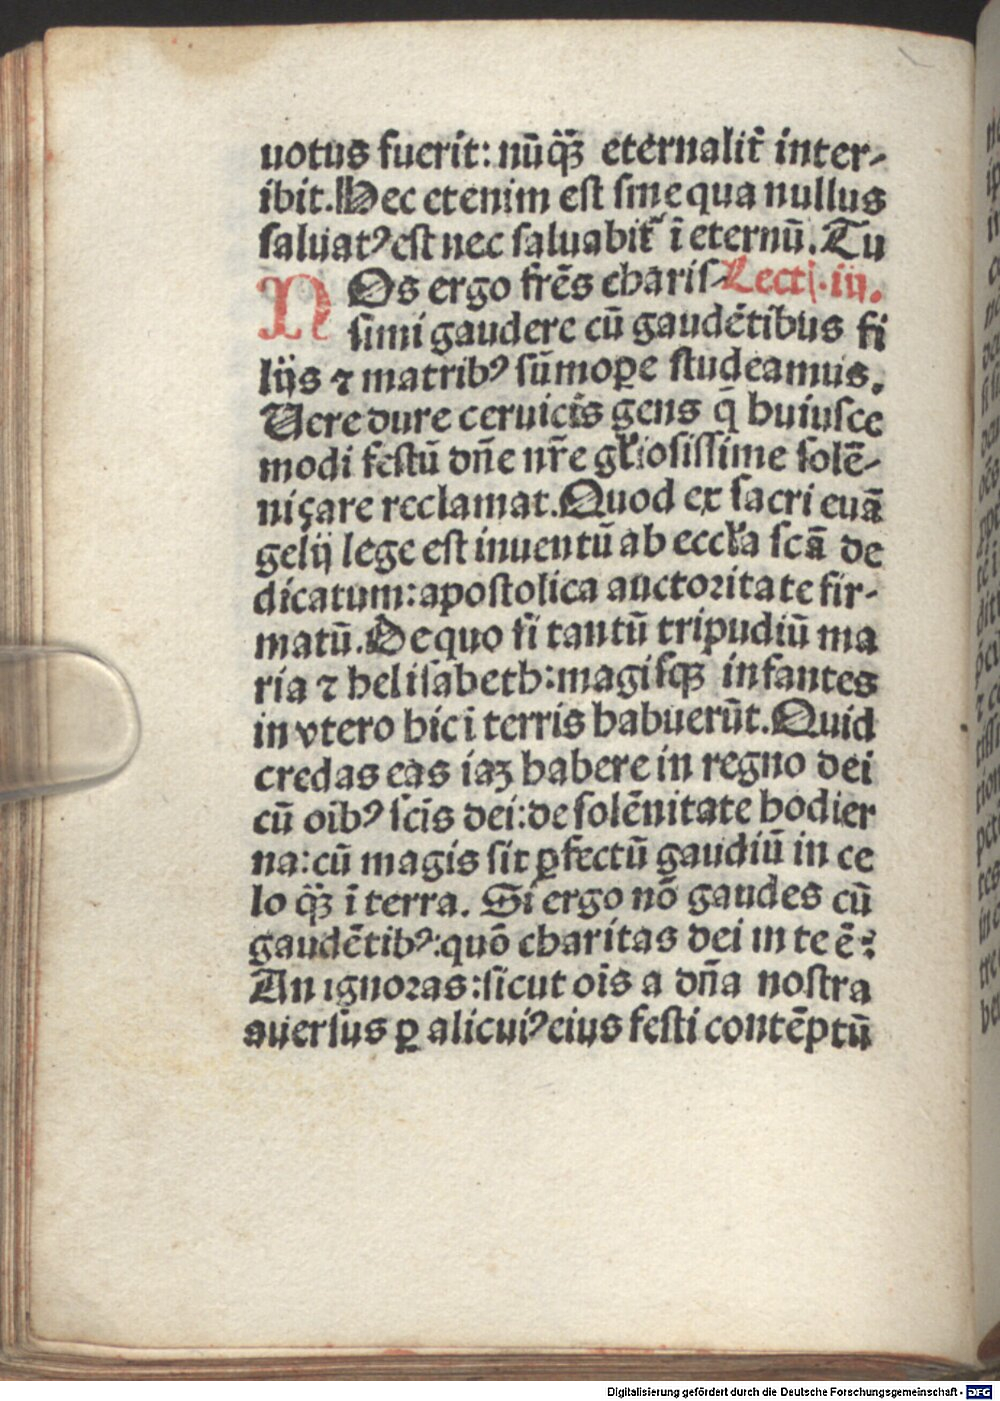 uotus fuerit: nūqꝫ̄ eternalit̄ inter-
ibit. Hec etenim est sine qua nullus
saluatꝰ est nec saluabit̄ ī eternū. Tu
NOs ergo frēs charis- Lectj. iij.
simi gaudere cū gaudētibus fi
lijs ⁊ matribꝰ sūmoꝑe studeamus.
Uere dure ceruicis gens q̄ huiusce
modi festū dn̄e nr̄e gl̄iosissime solē-
niçare reclamat. Quod ex sacri euā
gelij lege est inuentū ab eccl̄a scā de
dicatum: apostolica auctoritate fir-
matū. De quo si tantū tripudiū ma
ria ⁊ helisabeth: magisqꝫ infantes
in vtero hic ī terris habuerūt. Quid
credas eas iaꝫ habere in regno dei
cū oībꝰ scīs dei: de solēnitate hodier
na: cū magis sit ꝑfectū gaudiū in ce
lo qꝫ̄ ī terra. Si ergo nō gaudes cū
gaudētibꝰ: quō charitas dei in te ē?
An ignoras: sicut oīs a dn̄a nostra
auersus ꝑ alicuiꝰ eius festi contēptū
Digitalisierung gefördert durch die Deutsche Forschungsgemeinschaft - DFG